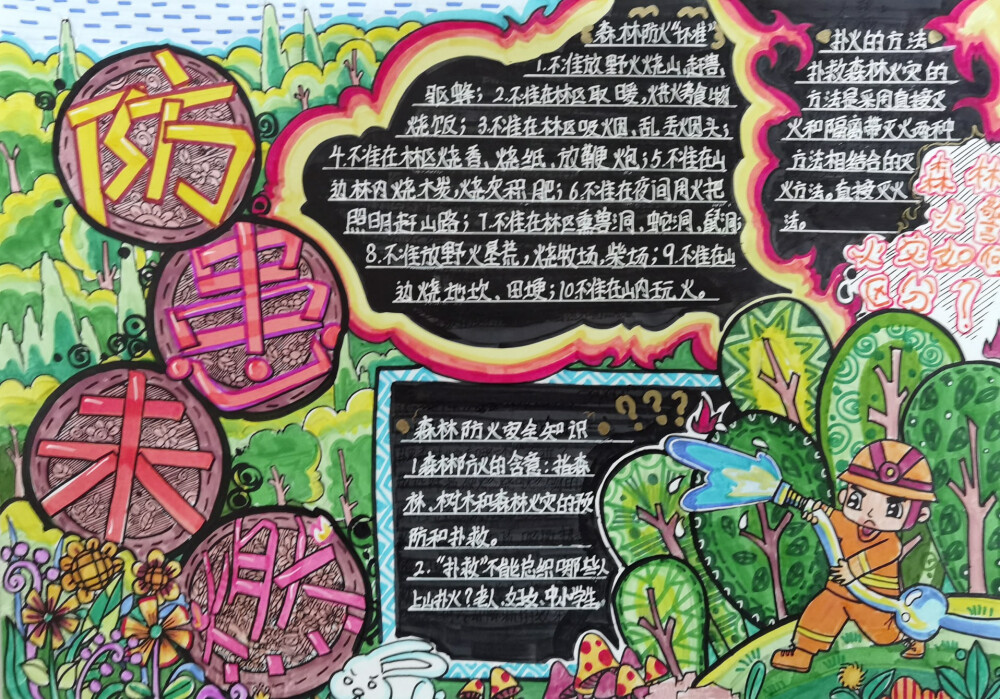 防
患
未
燃
森林防火"标准"
1.不准放野火烧山,赶兽,
驱蜂;2.不准在林区取暖,烘烤食物
烧饭;3.不准在林区吸火烟,乱丢火因头;
4.不准在林区烧香,烧纸,放鞭炮;5.不准在山
边林内烧木炭,烧灰积肥;6.不准在夜间用火把
照明赶山路;7.不准在林区熏兽洞,蛇洞,鼠洞;
8.不准放野火垦荒,烧牧场,柴场;9.不准在山
边烧地坎,田埂;10.不准在山内玩火。
扑火的方法
扑救森林火灾的
方法是采用直接灭
火和隔离带灭火两种
方法相结合的灭
火方法。直接灭火
法。
森林
火警
火灾如何
区分?
森林防火安全知识
???
1.森林防火的含意:指森
林、树木和森林火灾的预
防和扑救。
2.“扑救”不能组织哪些人
上山扑火?老人、妇女、中小学生。